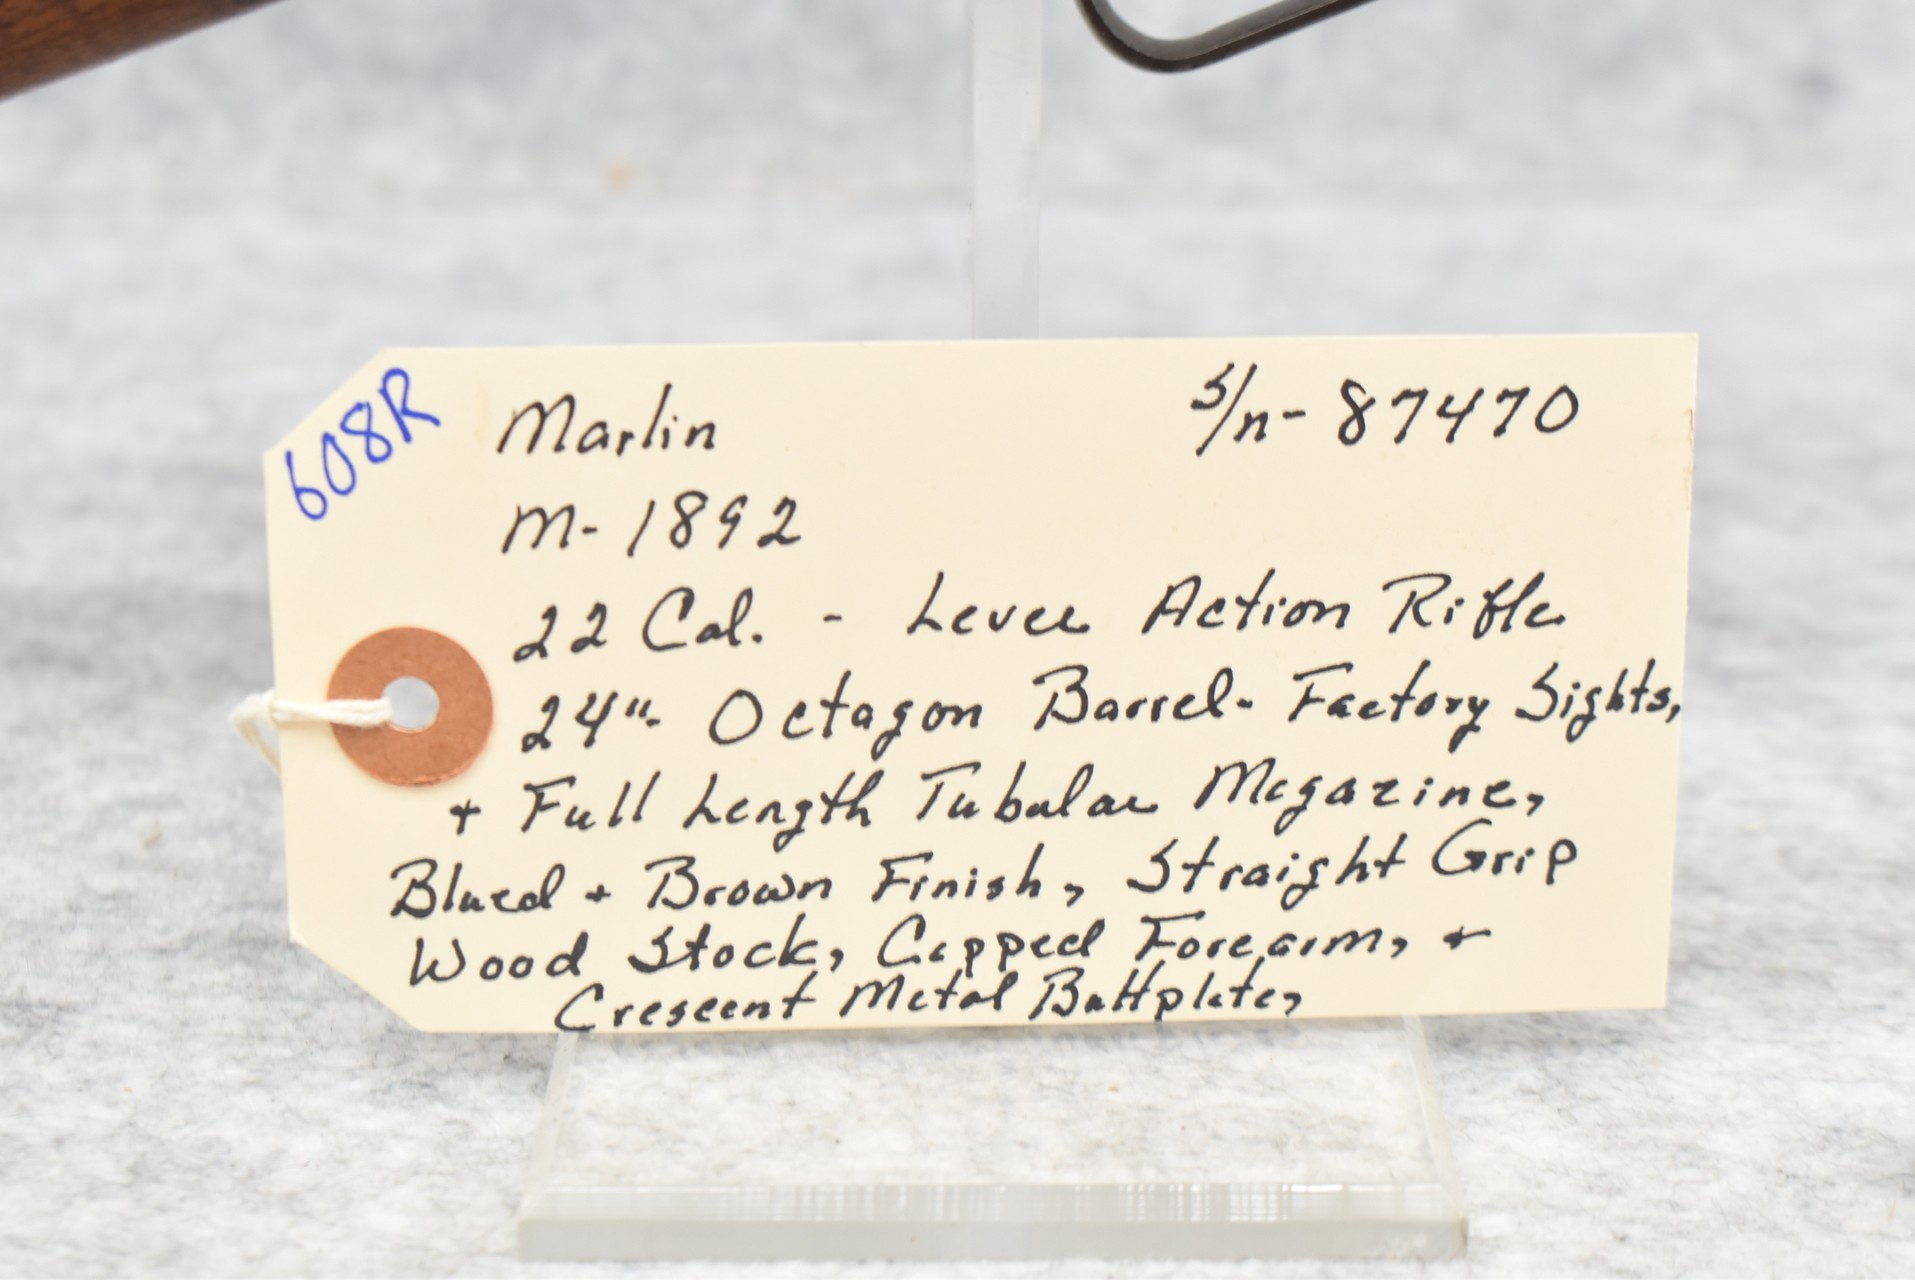 608R
Marlin S/n- 87470
M- 1892
22 Cal. - Lever Action Rifle
24"- Octagon Barrel- Factory Sights,
+ Full Length Tubular Magazine,
Blued + Brown Finish, Straight Grip
Wood Stock, Capped Forearm, +
Crescent Metal Buttplate,